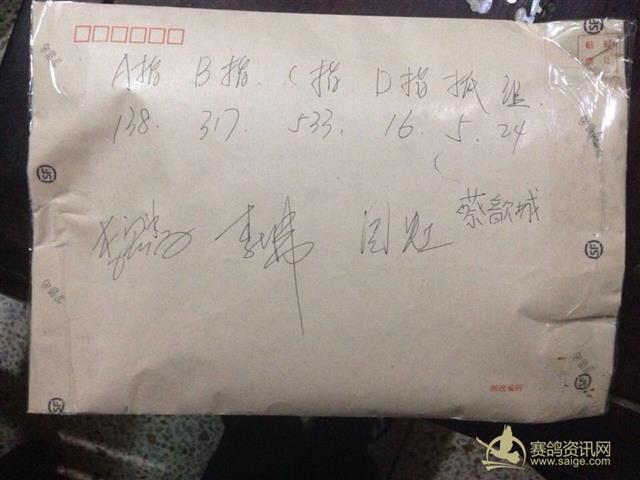 贴 邮
票 处
A指 B指 C指 D指 抓 组
138. 317. 533. 16. 5. 24
蔡歆城
邮政编码
SF
SF
SF
SF
SF
SF
赛鸽资讯网
www.saige.com